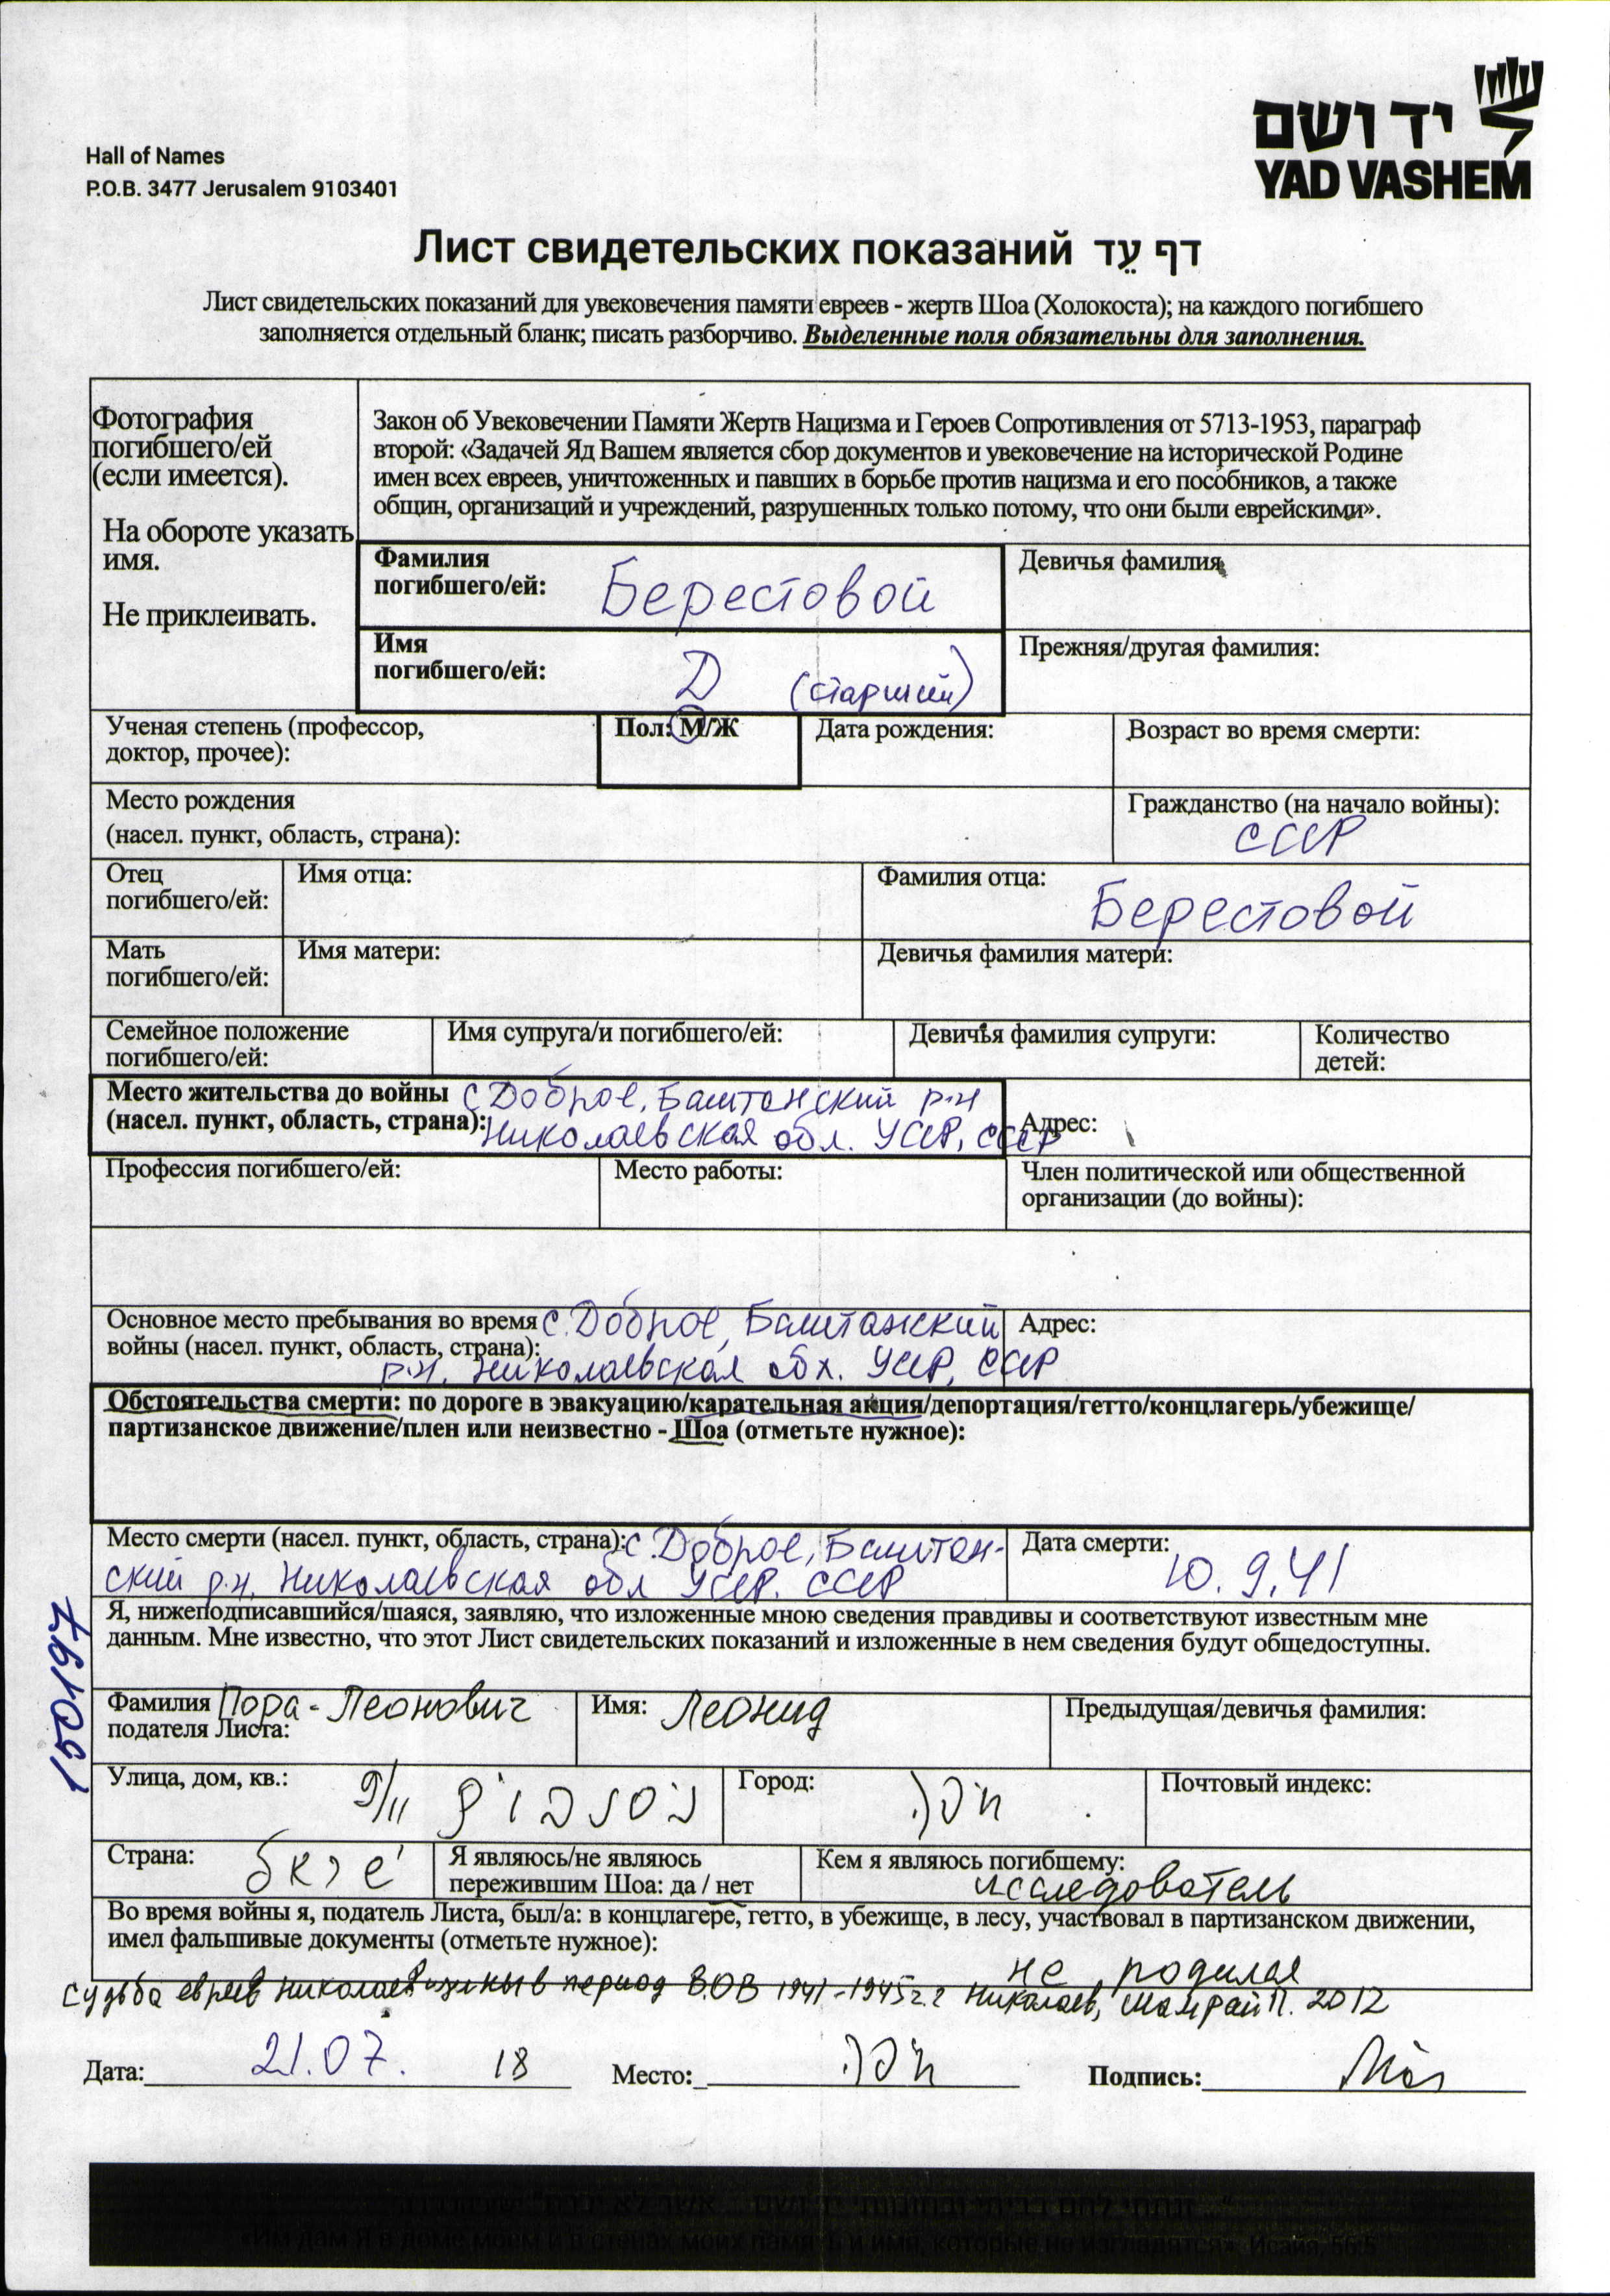 יד ושם
YAD VASHEM
Hall of Names
P.O.B. 3477 Jerusalem 9103401
Лист свидетельских показаний דף עֵד
Лист свидетельских показаний для увековечения памяти евреев - жертв Шоа (Холокоста); на каждого погибшего
заполняется отдельный бланк; писать разборчиво. Выделенные поля обязательны для заполнения.
Фотография
погибшего/ей
(если имеется).
На обороте указать
имя.
Не приклеивать.
Закон об Увековечении Памяти Жертв Нацизма и Героев Сопротивления от 5713-1953, параграф
второй: «Задачей Яд Вашем является сбор документов и увековечение на исторической Родине
имен всех евреев, уничтоженных и павших в борьбе против нацизма и его пособников, а также
общин, организаций и учреждений, разрушенных только потому, что они были еврейскими».
Фамилия
погибшего/ей: Берестовой
Девичья фамилия
Имя
погибшего/ей: Д (старший)
Прежняя/другая фамилия:
Ученая степень (профессор,
доктор, прочее):
Пол: М/Ж
Дата рождения:
Возраст во время смерти:
Место рождения
(насел. пункт, область, страна):
Гражданство (на начало войны):
СССР
Отец
погибшего/ей:
Имя отца:
Фамилия отца:
Берестовой
Мать
погибшего/ей:
Имя матери:
Девичья фамилия матери:
Семейное положение
погибшего/ей:
Имя супруга/и погибшего/ей:
Девичья фамилия супруги:
Количество
детей:
Место жительства до войны с Доброе, Баштанский р-н
(насел. пункт, область, страна): Николаевская обл. УССР, СССР
Адрес:
Профессия погибшего/ей:
Место работы:
Член политической или общественной
организации (до войны):
Основное место пребывания во время с. Доброе, Баштанский
войны (насел. пункт, область, страна):
р-н, Николаевская обл. УССР, СССР
Адрес:
Обстоятельства смерти: по дороге в эвакуацию/карательная акция/депортация/гетто/концлагерь/убежище/
партизанское движение/плен или неизвестно - Шоа (отметьте нужное):
Место смерти (насел. пункт, область, страна): с. Доброе, Баштан-
ский р-н, Николаевская обл УССР. СССР
Дата смерти:
10.9.41
Я, нижеподписавшийся/шаяся, заявляю, что изложенные мною сведения правдивы и соответствуют известным мне
данным. Мне известно, что этот Лист свидетельских показаний и изложенные в нем сведения будут общедоступны.
150197
Фамилия Пора-Леонович
подателя Листа:
Имя: Леонид
Предыдущая/девичья фамилия:
Улица, дом, кв.: 9/11
Город:
Почтовый индекс:
Страна:
Я являюсь/не являюсь
пережившим Шоа: да / нет
Кем я являюсь погибшему:
исследователь
Во время войны я, податель Листа, был/а: в концлагере, гетто, в убежище, в лесу, участвовал в партизанском движении,
имел фальшивые документы (отметьте нужное):
не родился
Судьба евреев Николаевщины в период В.О.В 1941-1945г.г Николаев, Шамрай П. 2012
Дата: 21.07. 18
Место:
Подпись:
«Им дам Я в доме моем и в стенах моих память и имя, которые не изгладятся» Исайя, 56:5